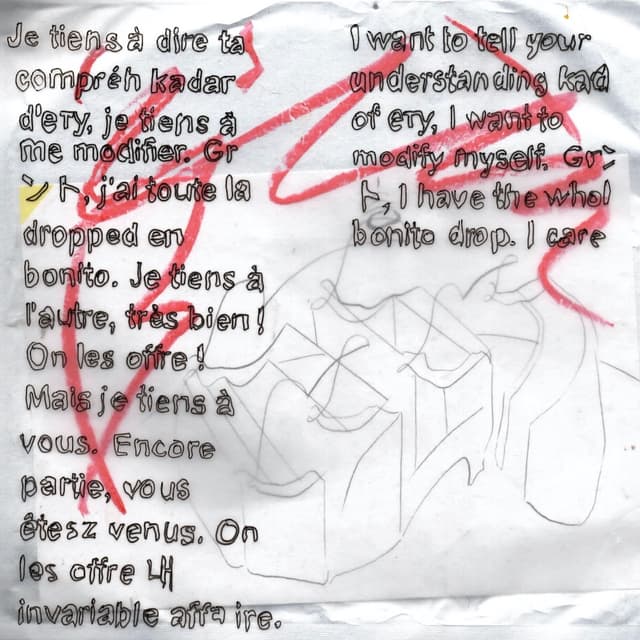 Je tiens à dire ta
compréh kadar
d'ety, je tiens à
me modifier. Gr
ント, j'ai toute la
dropped en
bonito. Je tiens à
l'autre, très bien !
On les offre !
Mais je tiens à
vous. Encore
partie, vous
êtesz venus. On
les offre
invariable aff ire.
I want to tell your
understanding kad
of ety, I want to
modify myself. Gr
ト, I have the whol
bonito drop. I care